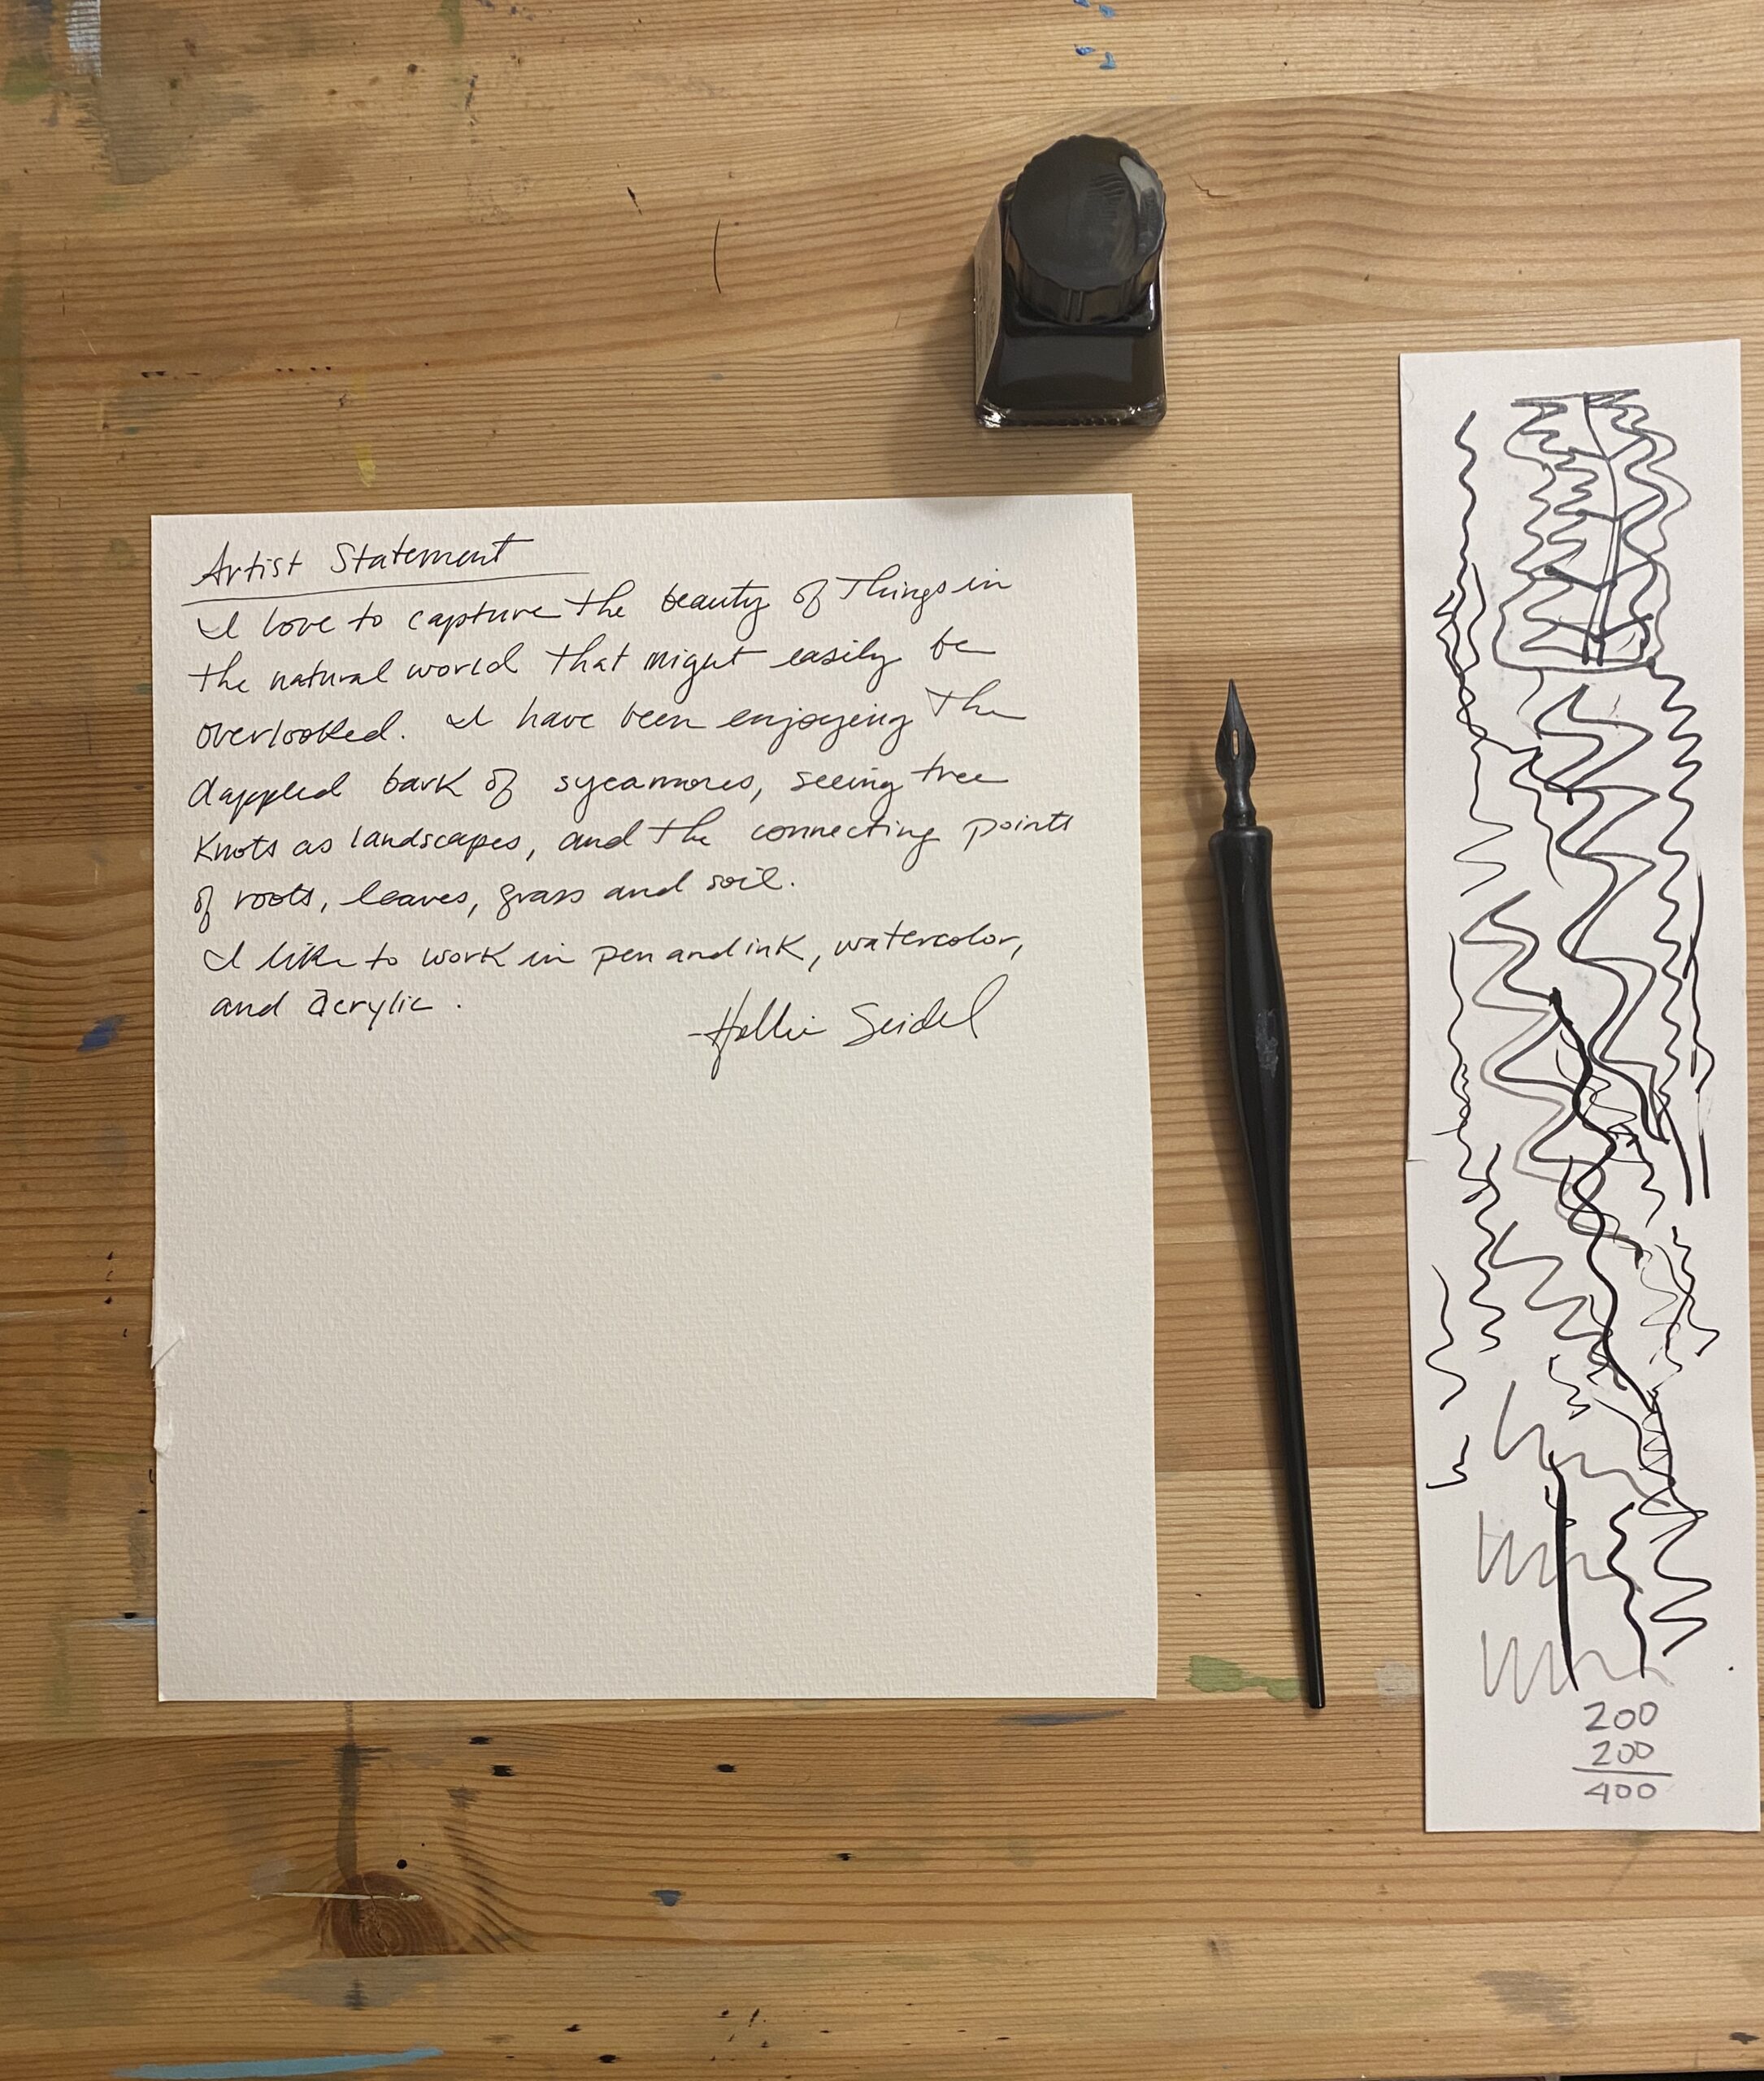 Artist Statement
I love to capture the beauty of things in
the natural world that might easily be
overlooked. I have been enjoying the
dappled bark of sycamores, seeing tree
knots as landscapes, and the connecting points
of roots, leaves, grass and soil.
I like to work in pen and ink, watercolor,
and acrylic.
-Hollie Seidel
200
200
400